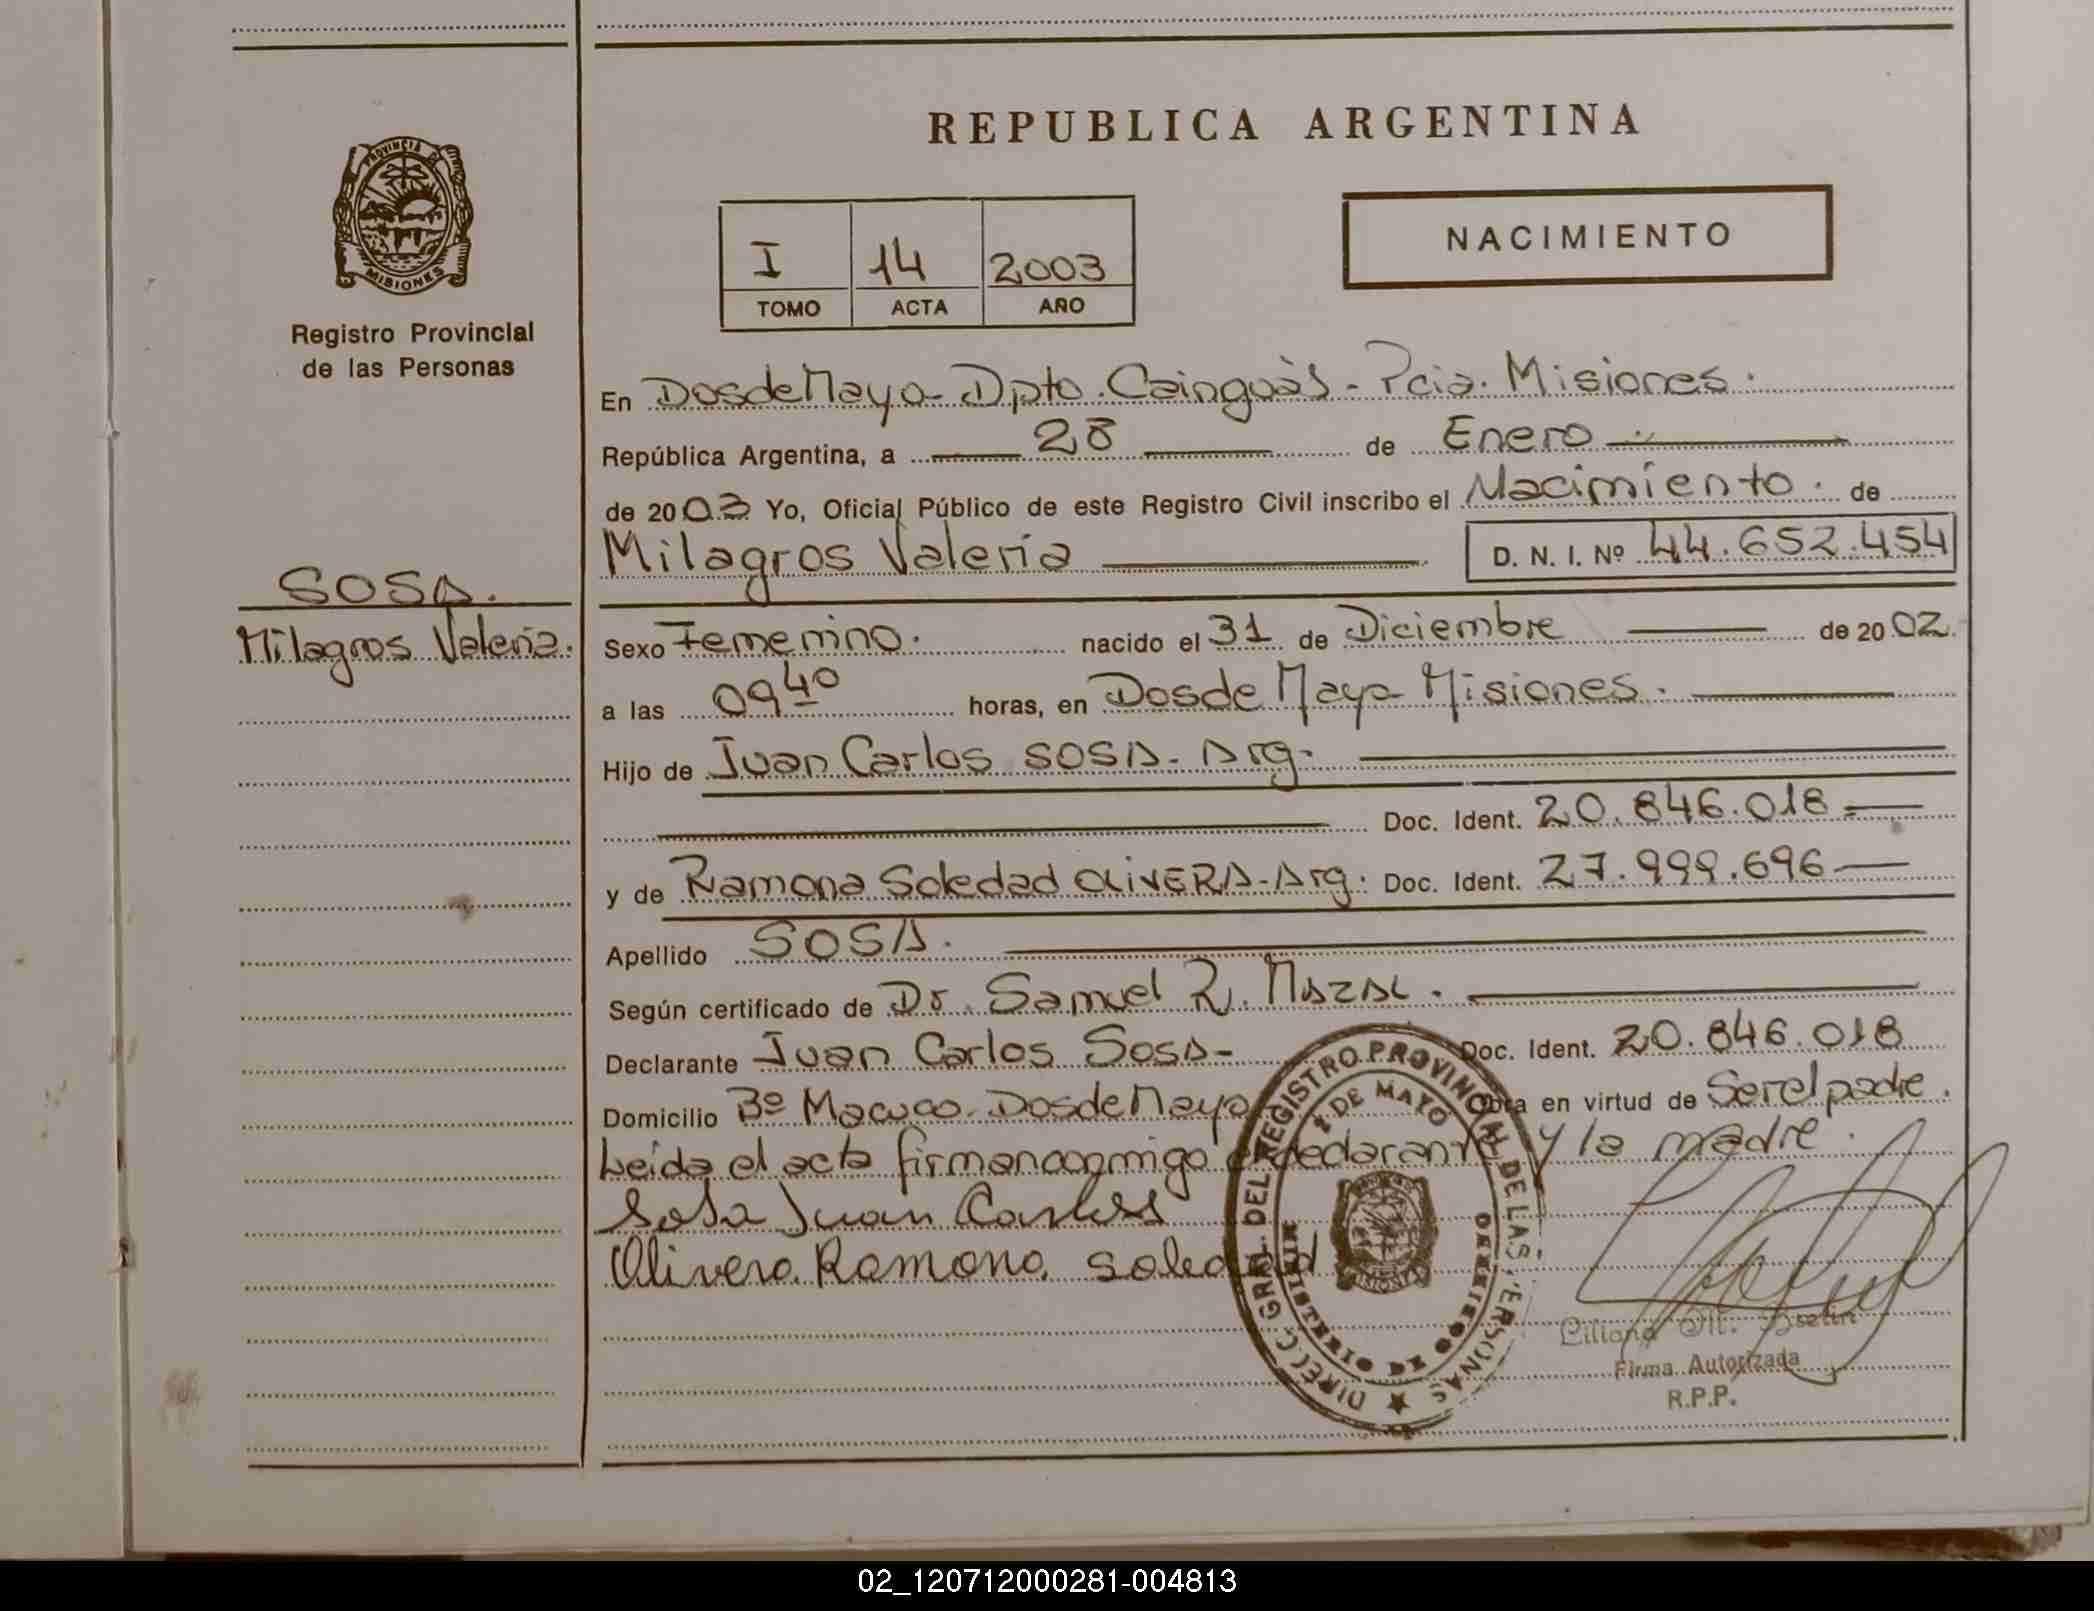 REPUBLICA ARGENTINA
PROVINCIA DE
MISIONES
Registro Provincial
de las Personas
I 14 2003
TOMO ACTA AÑO
NACIMIENTO
En Dos de Mayo - Dpto. Cainguàs - Pcia. Misiones.
República Argentina, a 28 de Enero
de 2003 Yo, Oficial Público de este Registro Civil inscribo el Nacimiento. de
Milagros Valeria D. N. I. Nº 44.652.454
SOSA.
Milagros Valeria.
Sexo Femenino. nacido el 31 de Diciembre de 2002.
a las 09 40 horas, en Dos de Mayo - Misiones.
Hijo de Juan Carlos SOSA - Arg.
Doc. Ident. 20.846.018
y de Ramona Soledad OLIVERA - Arg. Doc. Ident. 27.999.696
Apellido SOSA.
Según certificado de Dr. Samuel R. MAZAL.
Declarante Juan Carlos SOSA - Doc. Ident. 20.846.018
Domicilio Bº Macuco - Dos de Mayo Obra en virtud de Ser el padre.
Leida el acta firman conmigo el declarante y la madre.
Sosa Juan Carlos
Olivera Ramona Soledad
DIRECC. GRAL. DEL REGISTRO PROVINCIAL DE LAS PERSONAS
2 DE MAYO
MISIONES
Liliana M.
Firma Autorizada
R.P.P.
02_120712000281-004813